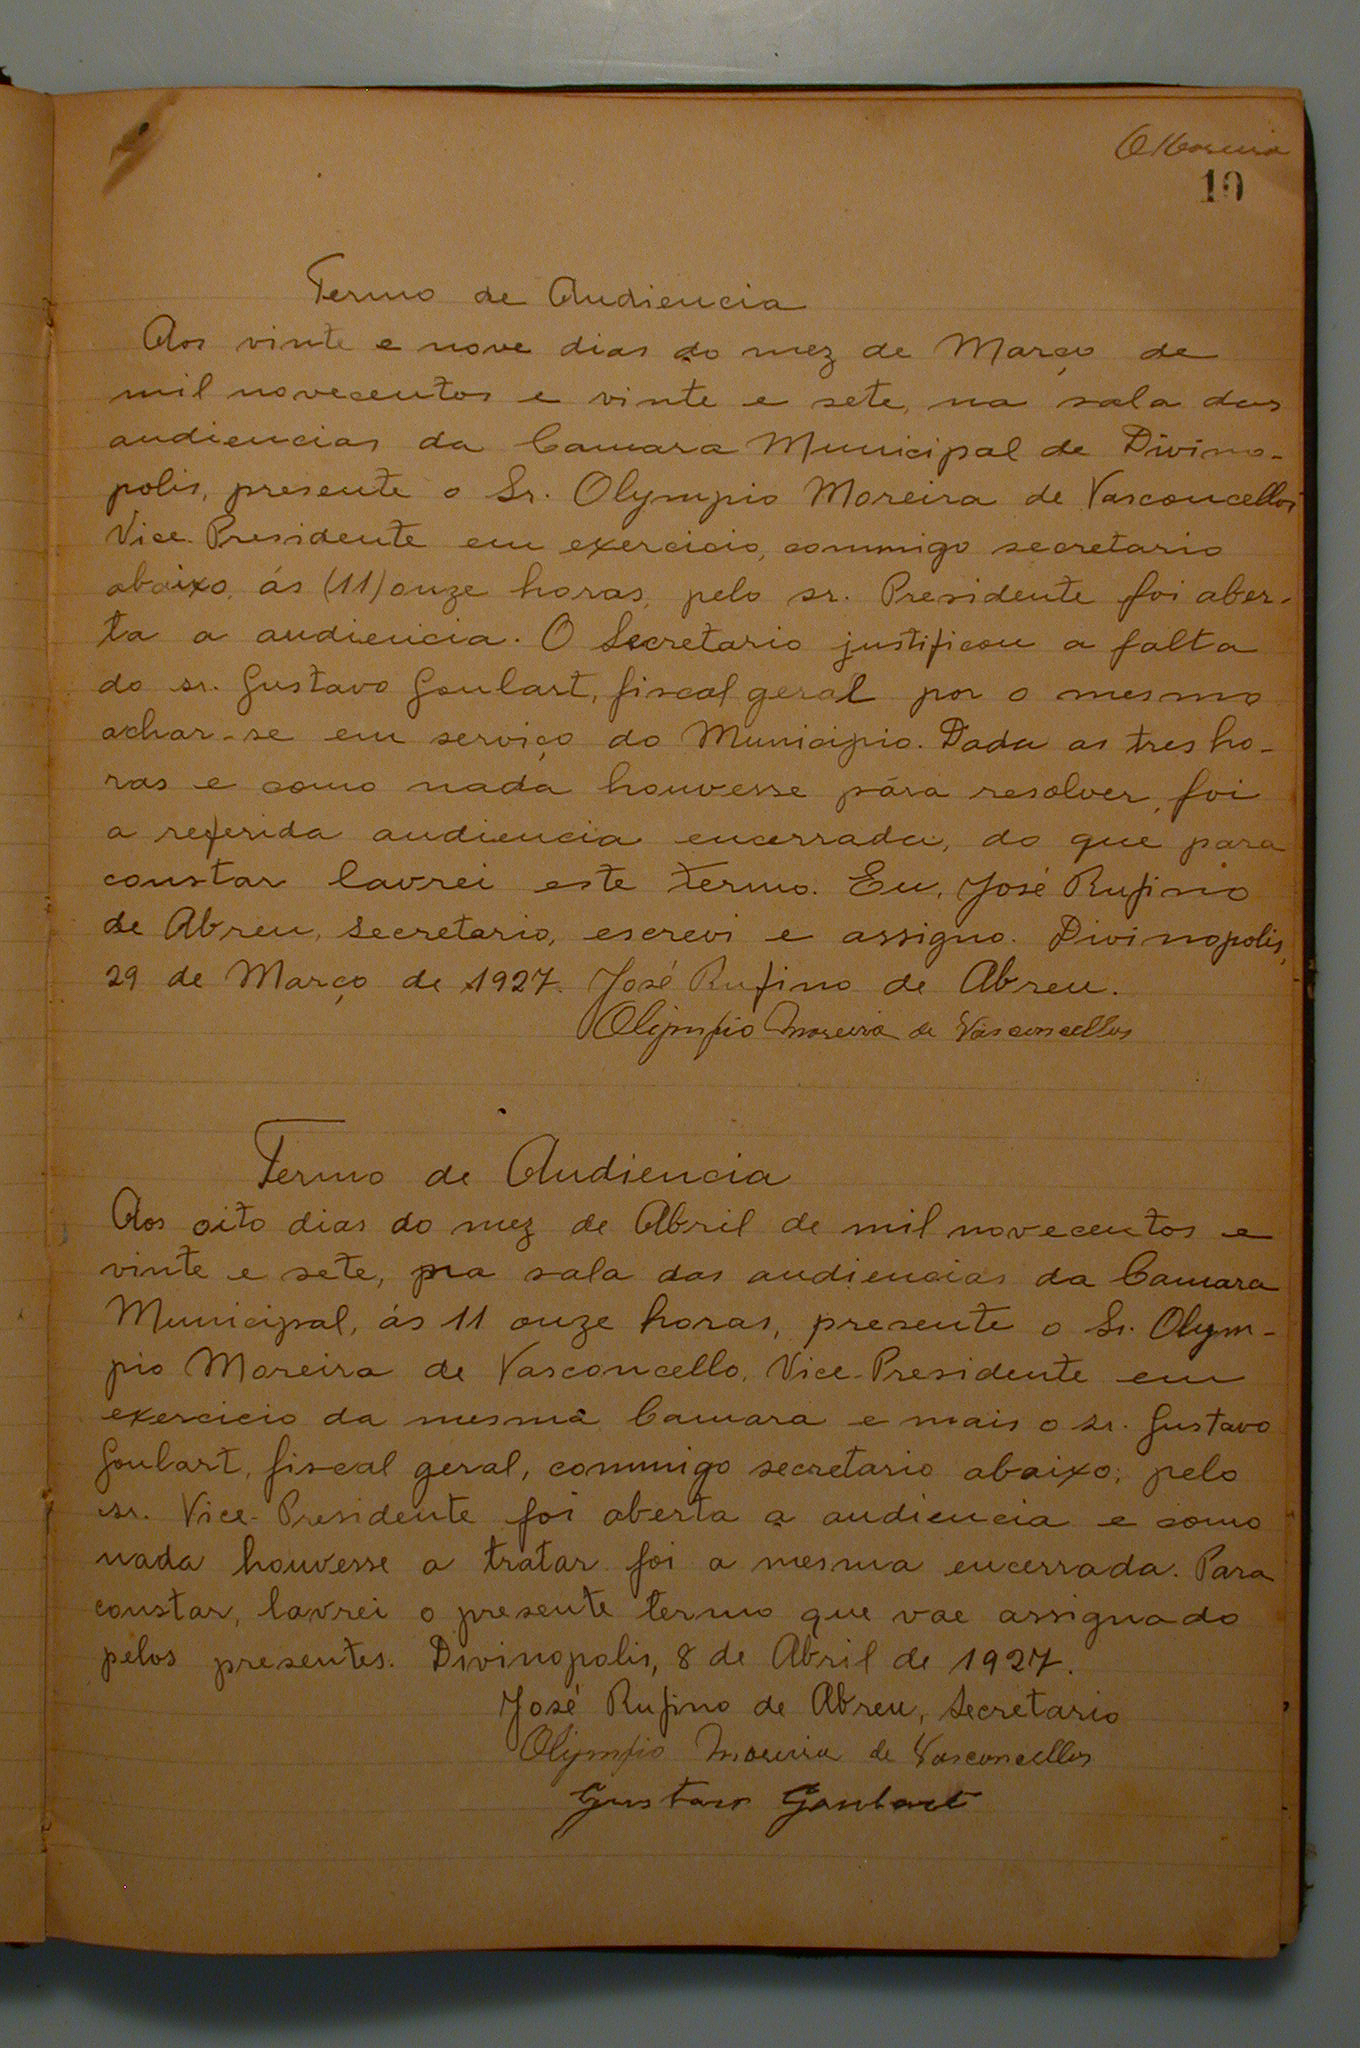 OMoreira
10
Termo de Audiencia
Aos vinte e nove dias do mez de Março de
mil novecentos e vinte e sete, na sala das
audiencias da Camara Municipal de Divino-
polis, presente o Sr. Olympio Moreira de Vasconcellos
Vice-Presidente em exercicio, commigo secretario
abaixo, ás (11) onze horas, pelo sr. Presidente foi aber-
ta a audiencia. O Secretario justificou a falta
do sr. Gustavo Goulart, fiscal geral por o mesmo
achar-se em serviço do Municipio. Dada as tres ho-
ras e como nada houvesse pára resolver, foi
a referida audiencia encerrada, do que para
constar lavrei este termo. Eu, José Rufino
de Abreu, secretario, escrevi e assigno. Divinopolis,
29 de Março de 1927. José Rufino de Abreu.
Olympio Moreira de Vasconcellos
Termo de Audiencia
Aos oito dias do mez de Abril de mil novecentos e
vinte e sete, na sala das audiencias da Camara
Municipal, ás 11 onze horas, presente o Sr. Olym-
pio Moreira de Vasconcello, Vice-Presidente em
exercicio da mesma Camara e mais o sr. Gustavo
Goulart, fiscal geral, commigo secretario abaixo; pelo
sr. Vice-Presidente foi aberta a audiencia e como
nada houvesse a tratar foi a mesma encerrada. Para
constar, lavrei o presente termo que vae assignado
pelos presentes. Divinopolis, 8 de Abril de 1927.
José Rufino de Abreu, secretario
Olympio Moreira de Vasconcellos
Gustavo Goulart